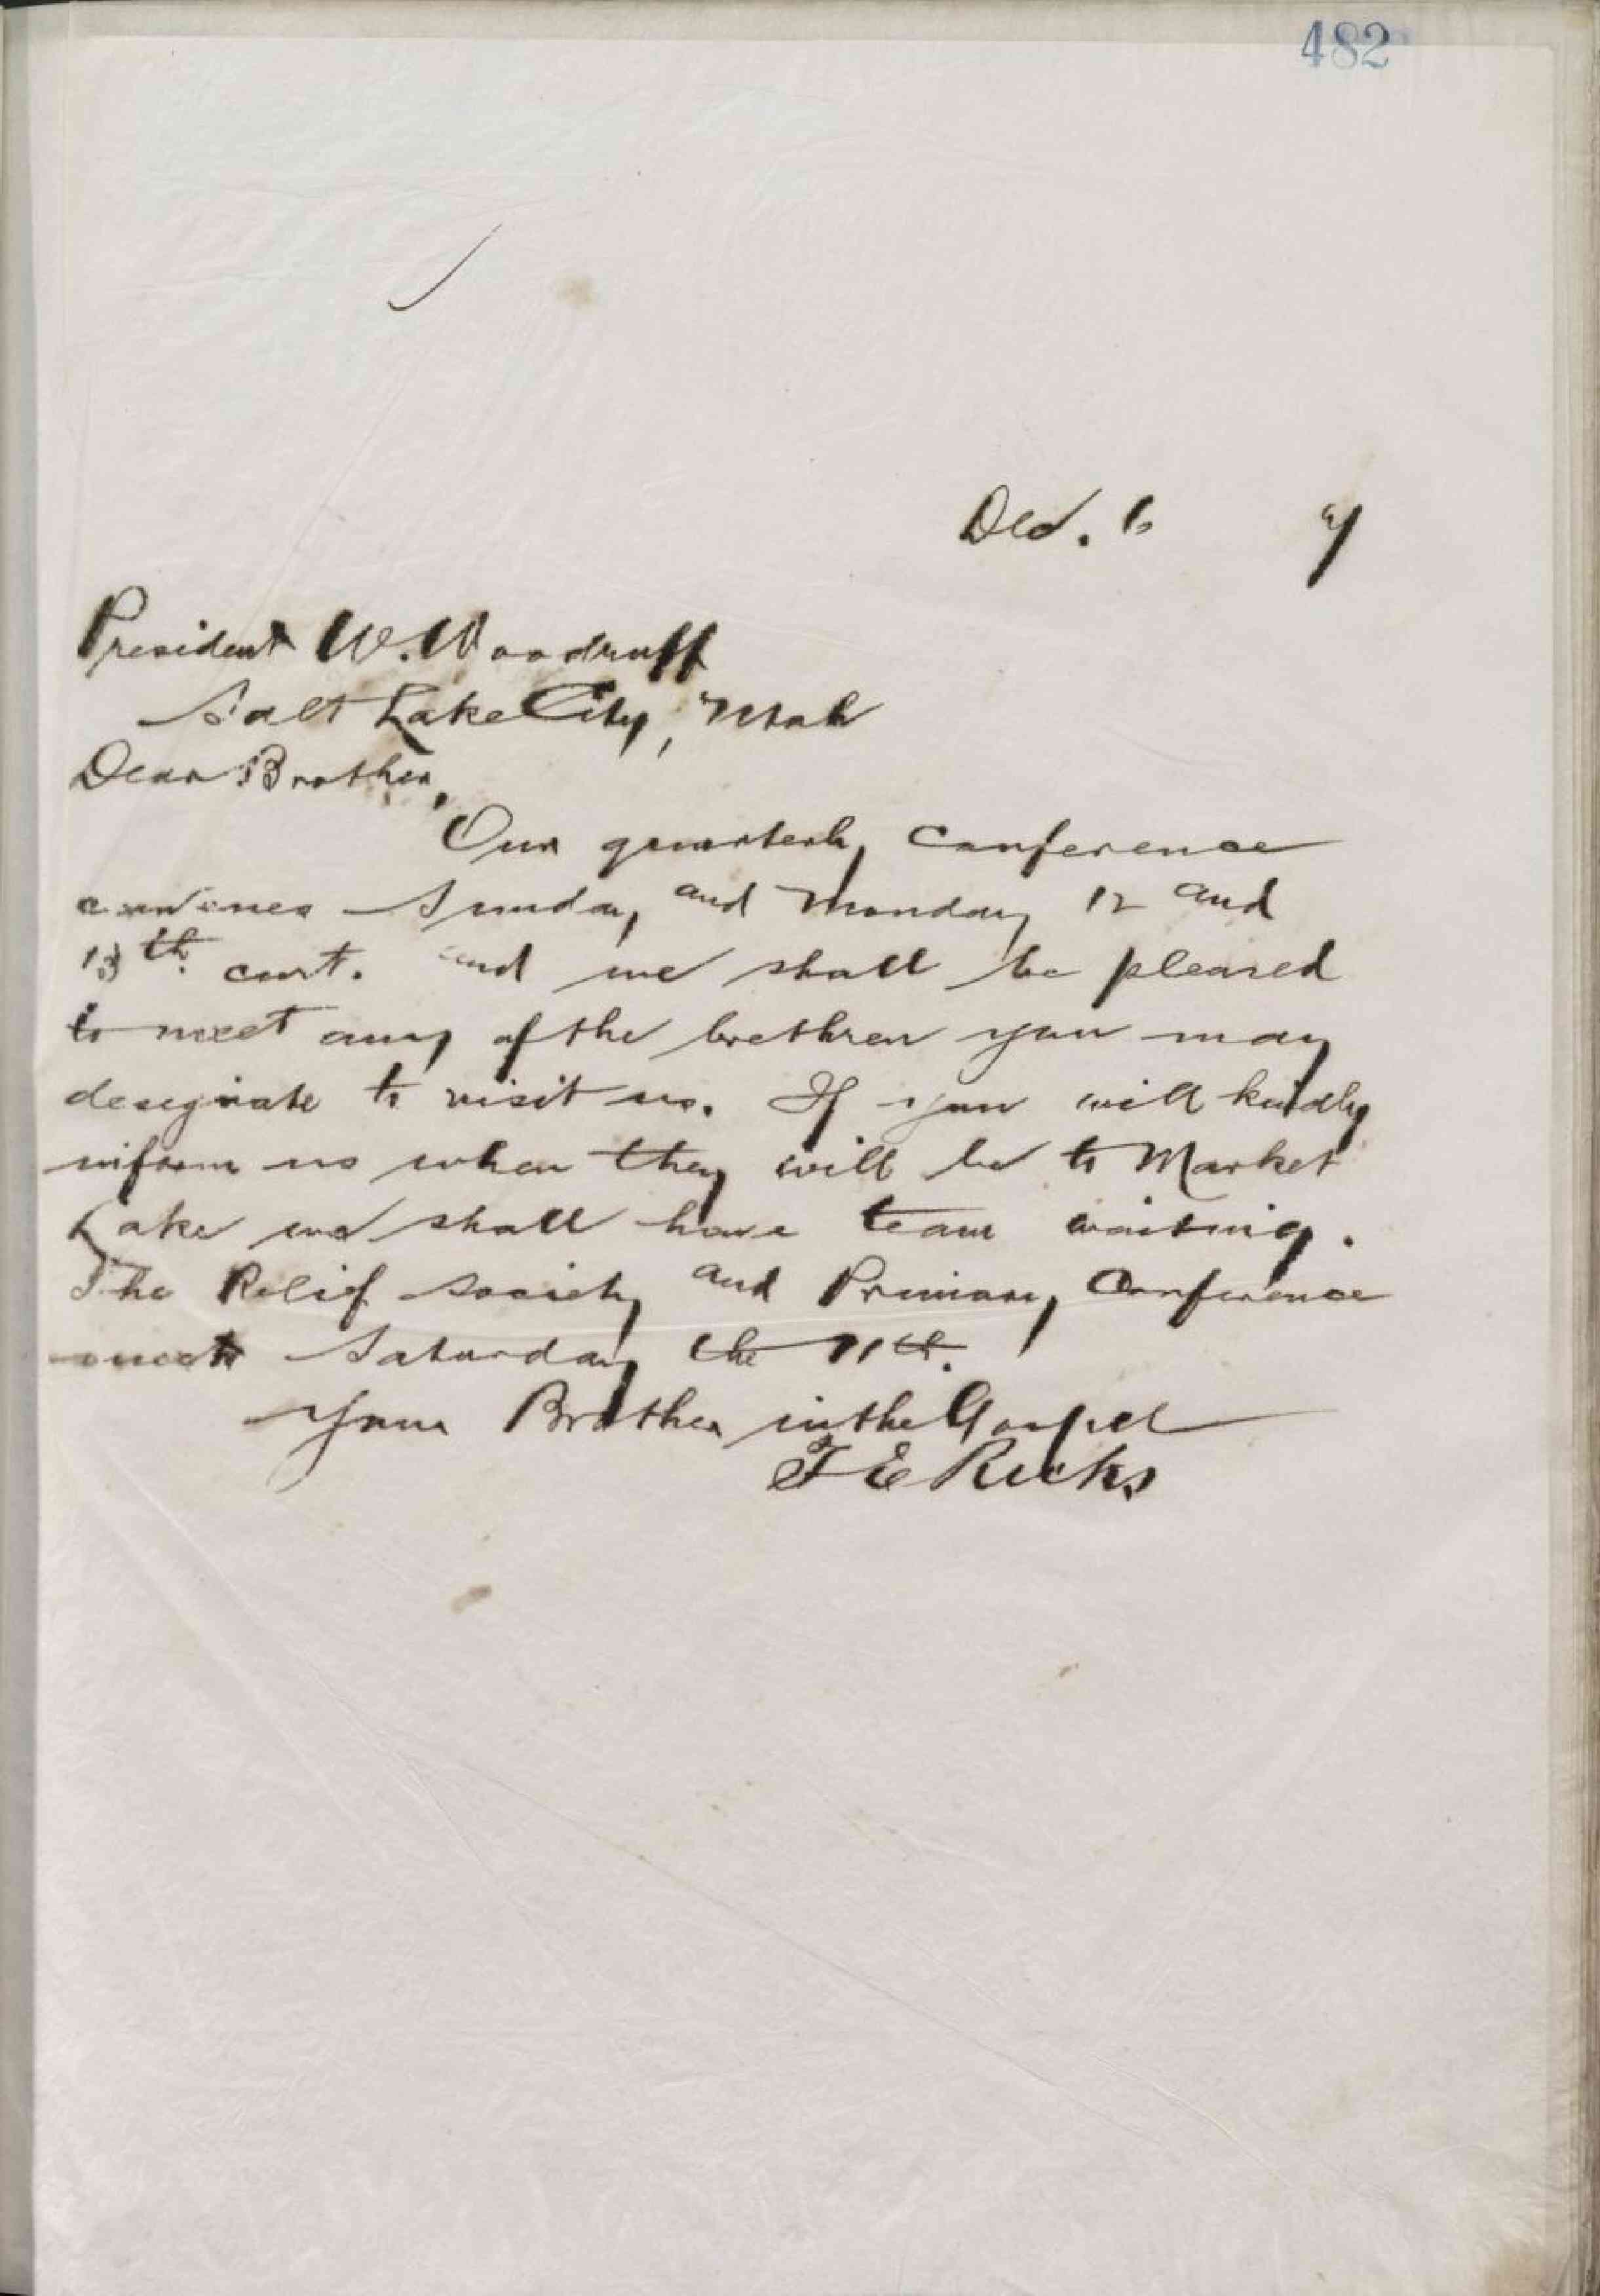 482
Dec. 6 7
President W. Woodruff
Salt Lake City, Utah
Dear Brother,
Our quarterly conference
convenes Sunday and Monday 12 and
13th. curt. and we shall be pleased
to meet any of the brethren you may
desegnate to visit us. If you will kindly
inform us when they will be to Market
Lake we shall have team waiting.
The Relief Society and Primary Conference
meets Saturday the 11th.
Your Brother in the Gospel
T E Ricks